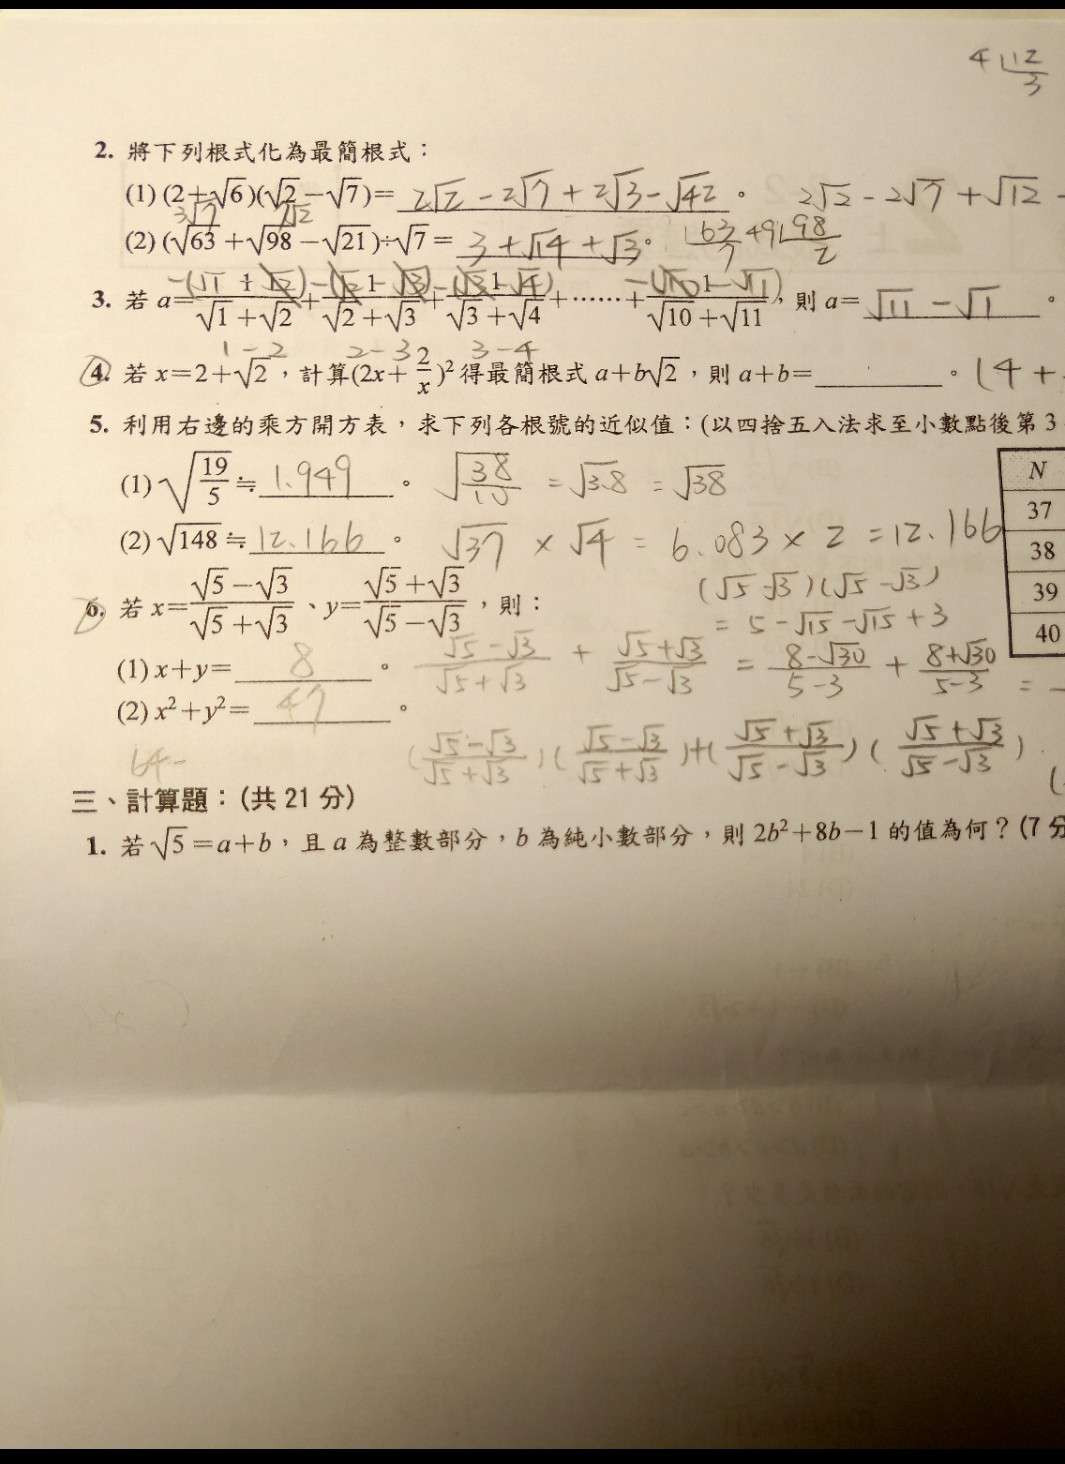 4 12
3
2. 將下列根式化為最簡根式：
(1) (2+√6)(√2−√7)= 2√2−2√7+2√3−√42 。 2√2−2√7+√12 −
3√7 7√2
(2) (√63+√98−√21)÷√7= 3+√14+√3 。 63 49 98
7 2
−(√1+√2) −(√2+√3) −(√3+√4) −(√10−√11)
3. 若 a=  / (√1+√2) +  / (√2+√3) +  / (√3+√4) +⋯⋯+  / (√10+√11)，則 a= √11−√1 。
1−2 2−3 3−4
4. 若 x=2+√2，計算(2x+2/x)²得最簡根式 a+b√2，則 a+b=______。 (4+
5. 利用右邊的乘方開方表，求下列各根號的近似值：(以四捨五入法求至小數點後第 3
(1) √(19/5)≒ 1.949 。 √(38/10) = √3.8 = √38
(2) √148≒ 12.166 。 √37 × √4 = 6.083 × 2 = 12.166
N
37
38
39
40
(√5−√3)(√5−√3)
= 5−√15−√15+3
6. 若 x=(√5−√3)/(√5+√3)、y=(√5+√3)/(√5−√3)，則：
(1) x+y= 8 。 (√5−√3)/(√5+√3) + (√5+√3)/(√5−√3) = (8−√30)/(5−3) + (8+√30)/(5−3) =
(2) x²+y²= 47 。
((√5−√3)/(√5+√3))((√5−√3)/(√5+√3))+((√5+√3)/(√5−√3))((√5+√3)/(√5−√3))
64−
三、計算題：(共 21 分)
1. 若√5=a+b，且 a 為整數部分，b 為純小數部分，則 2b²+8b−1 的值為何？(7 分